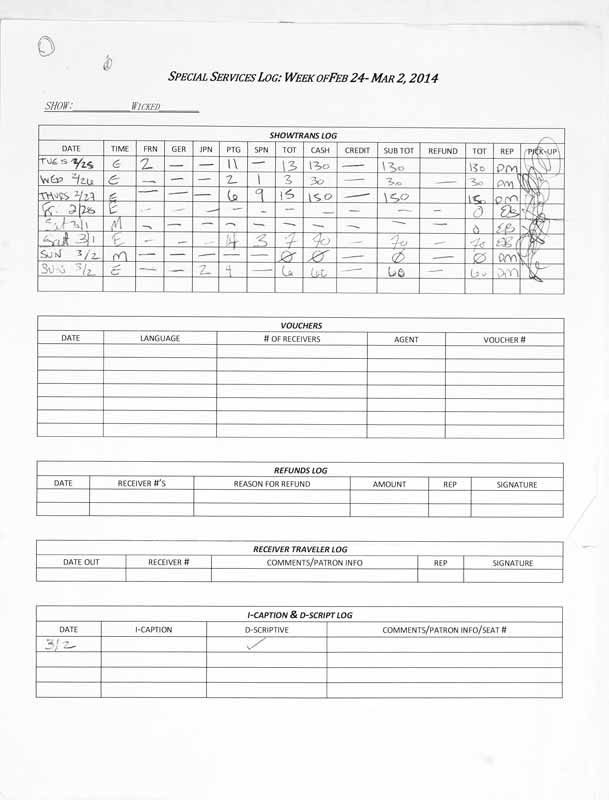 SPECIAL SERVICES LOG: WEEK OFFEB 24- MAR 2, 2014
SHOW: WICKED
SHOWTRANS LOG
DATE TIME FRN GER JPN PTG SPN TOT CASH CREDIT SUB TOT REFUND TOT REP PICK-UP
TUES 2/25 E 2 — — 11 — 13 130 — 130 130 DM
WED 2/26 E — — — 2 1 3 30 — 30 — 30 DM
THURS 2/27 E — — — 6 9 15 150 — 150 150 DM
Fri. 2/28 E — — — — — — — — — — 0 EB
Sat 3/1 M — — — — — — — — — — 0 EB
Sat 3/1 E — — — 4 3 7 70 — 70 — 70 EB
SUN 3/2 M — — — — — Ø Ø — Ø — Ø DM
SUN 3/2 E — — 2 4 — 6 60 — 60 — 60 DM
VOUCHERS
DATE LANGUAGE # OF RECEIVERS AGENT VOUCHER #
REFUNDS LOG
DATE RECEIVER #'S REASON FOR REFUND AMOUNT REP SIGNATURE
RECEIVER TRAVELER LOG
DATE OUT RECEIVER # COMMENTS/PATRON INFO REP SIGNATURE
I-CAPTION & D-SCRIPT LOG
DATE I-CAPTION D-SCRIPTIVE COMMENTS/PATRON INFO/SEAT #
3/2 ✓